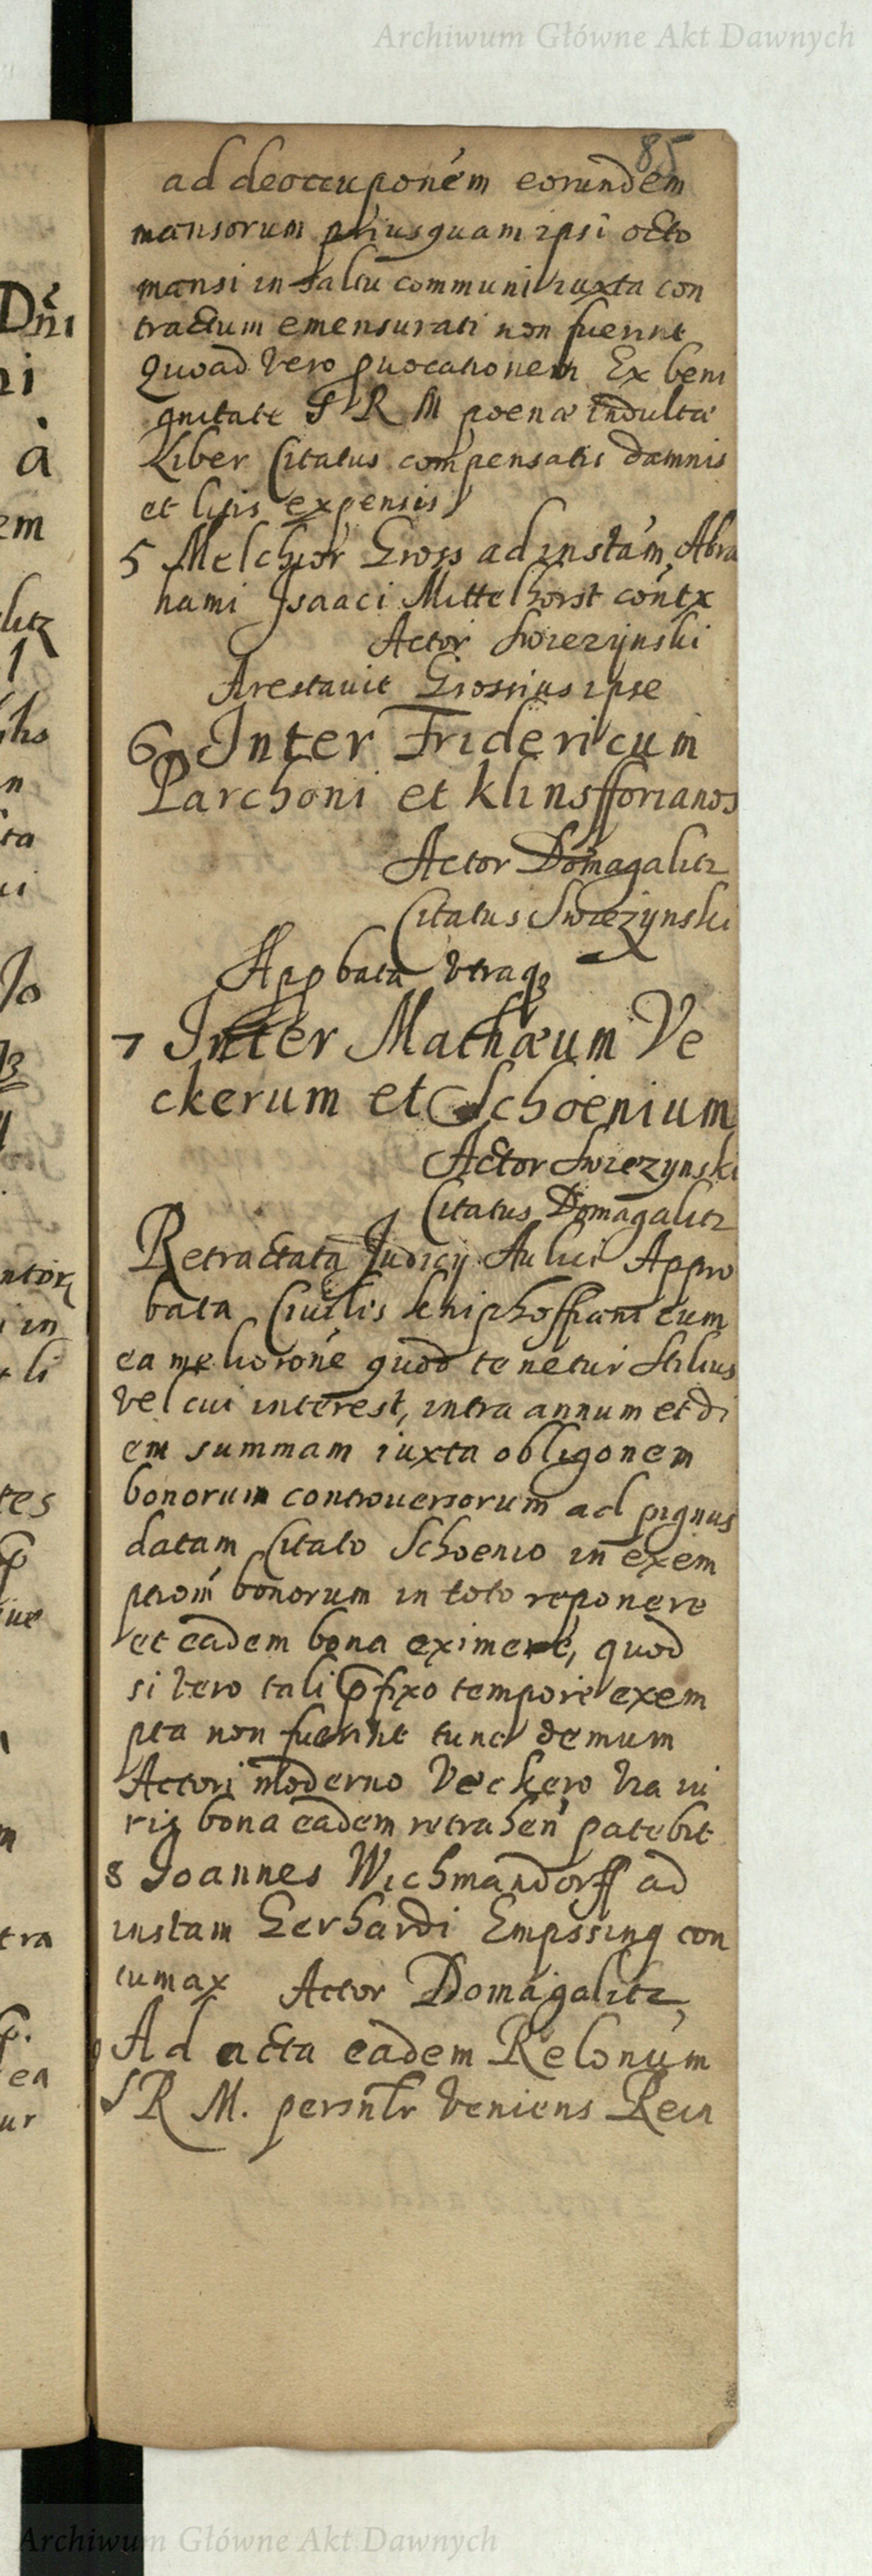 Archiwum Główne Akt Dawnych
85
ad deoccuponem eorundem
mansorum priusquam ipsi octo
mansi in saltu communi iuxta con
tractum emensurati non fuerint
Quoad vero Ex beni
gnitate S R M poenæ indultæ
Liber Citatus compensatis damnis
et litis expensis
5 Melchior Gross ad instam Abra
hami Isaaci Mittelhorst contx
Actor Swiezynski
Arestavit Grossius ipse
6 Inter Fridericum
Parchoni et klinsfforianos
Actor Domagalitz
Citatus Swiezynski
Appbata utraqꝫ
7 Inter Mathæum Ve
ckerum et Schoenium
Actor Swiezynski
Citatus Domagalitz
Retractata Judicij Aulici Appro
bata Civilis kniphoffiani cum
ea meliorone quod tenetur Stilius
vel cui interest, intra annum et di
em summam iuxta obligonem
bonorum controversorum ad pignus
datam Citato Schoenio in exem
ptiom bonorum in toto reponere
et eadem bona eximere, quod
si vero tali p̄fixo tempore exem
pta non fuerint tunc demum
Actori moderno Veckero via iu
ris bona eadem retrahen patebit
8 Joannes Wichmandorff ad
instam Gerhardi Empssing con
tumax Actor Domagalitz
Ad acta eadem Relonum
S R M. persnlr veniens Rein
Archiwum Główne Akt Dawnych